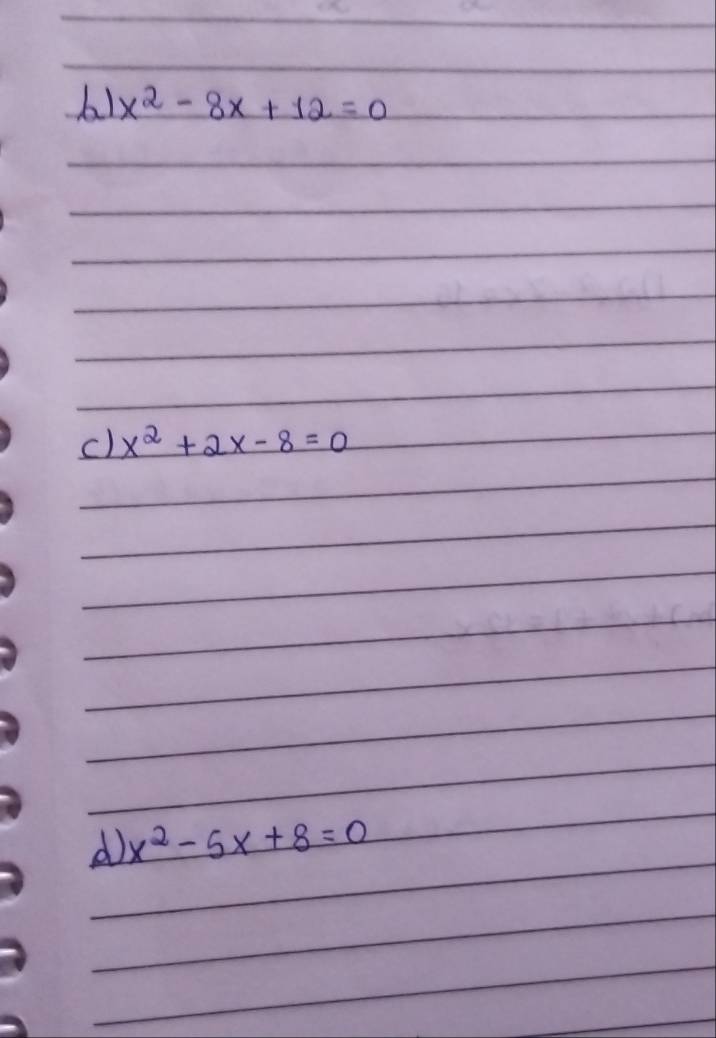 b) x² - 8x + 12 = 0
c) x² + 2x - 8 = 0
d) x² - 5x + 8 = 0